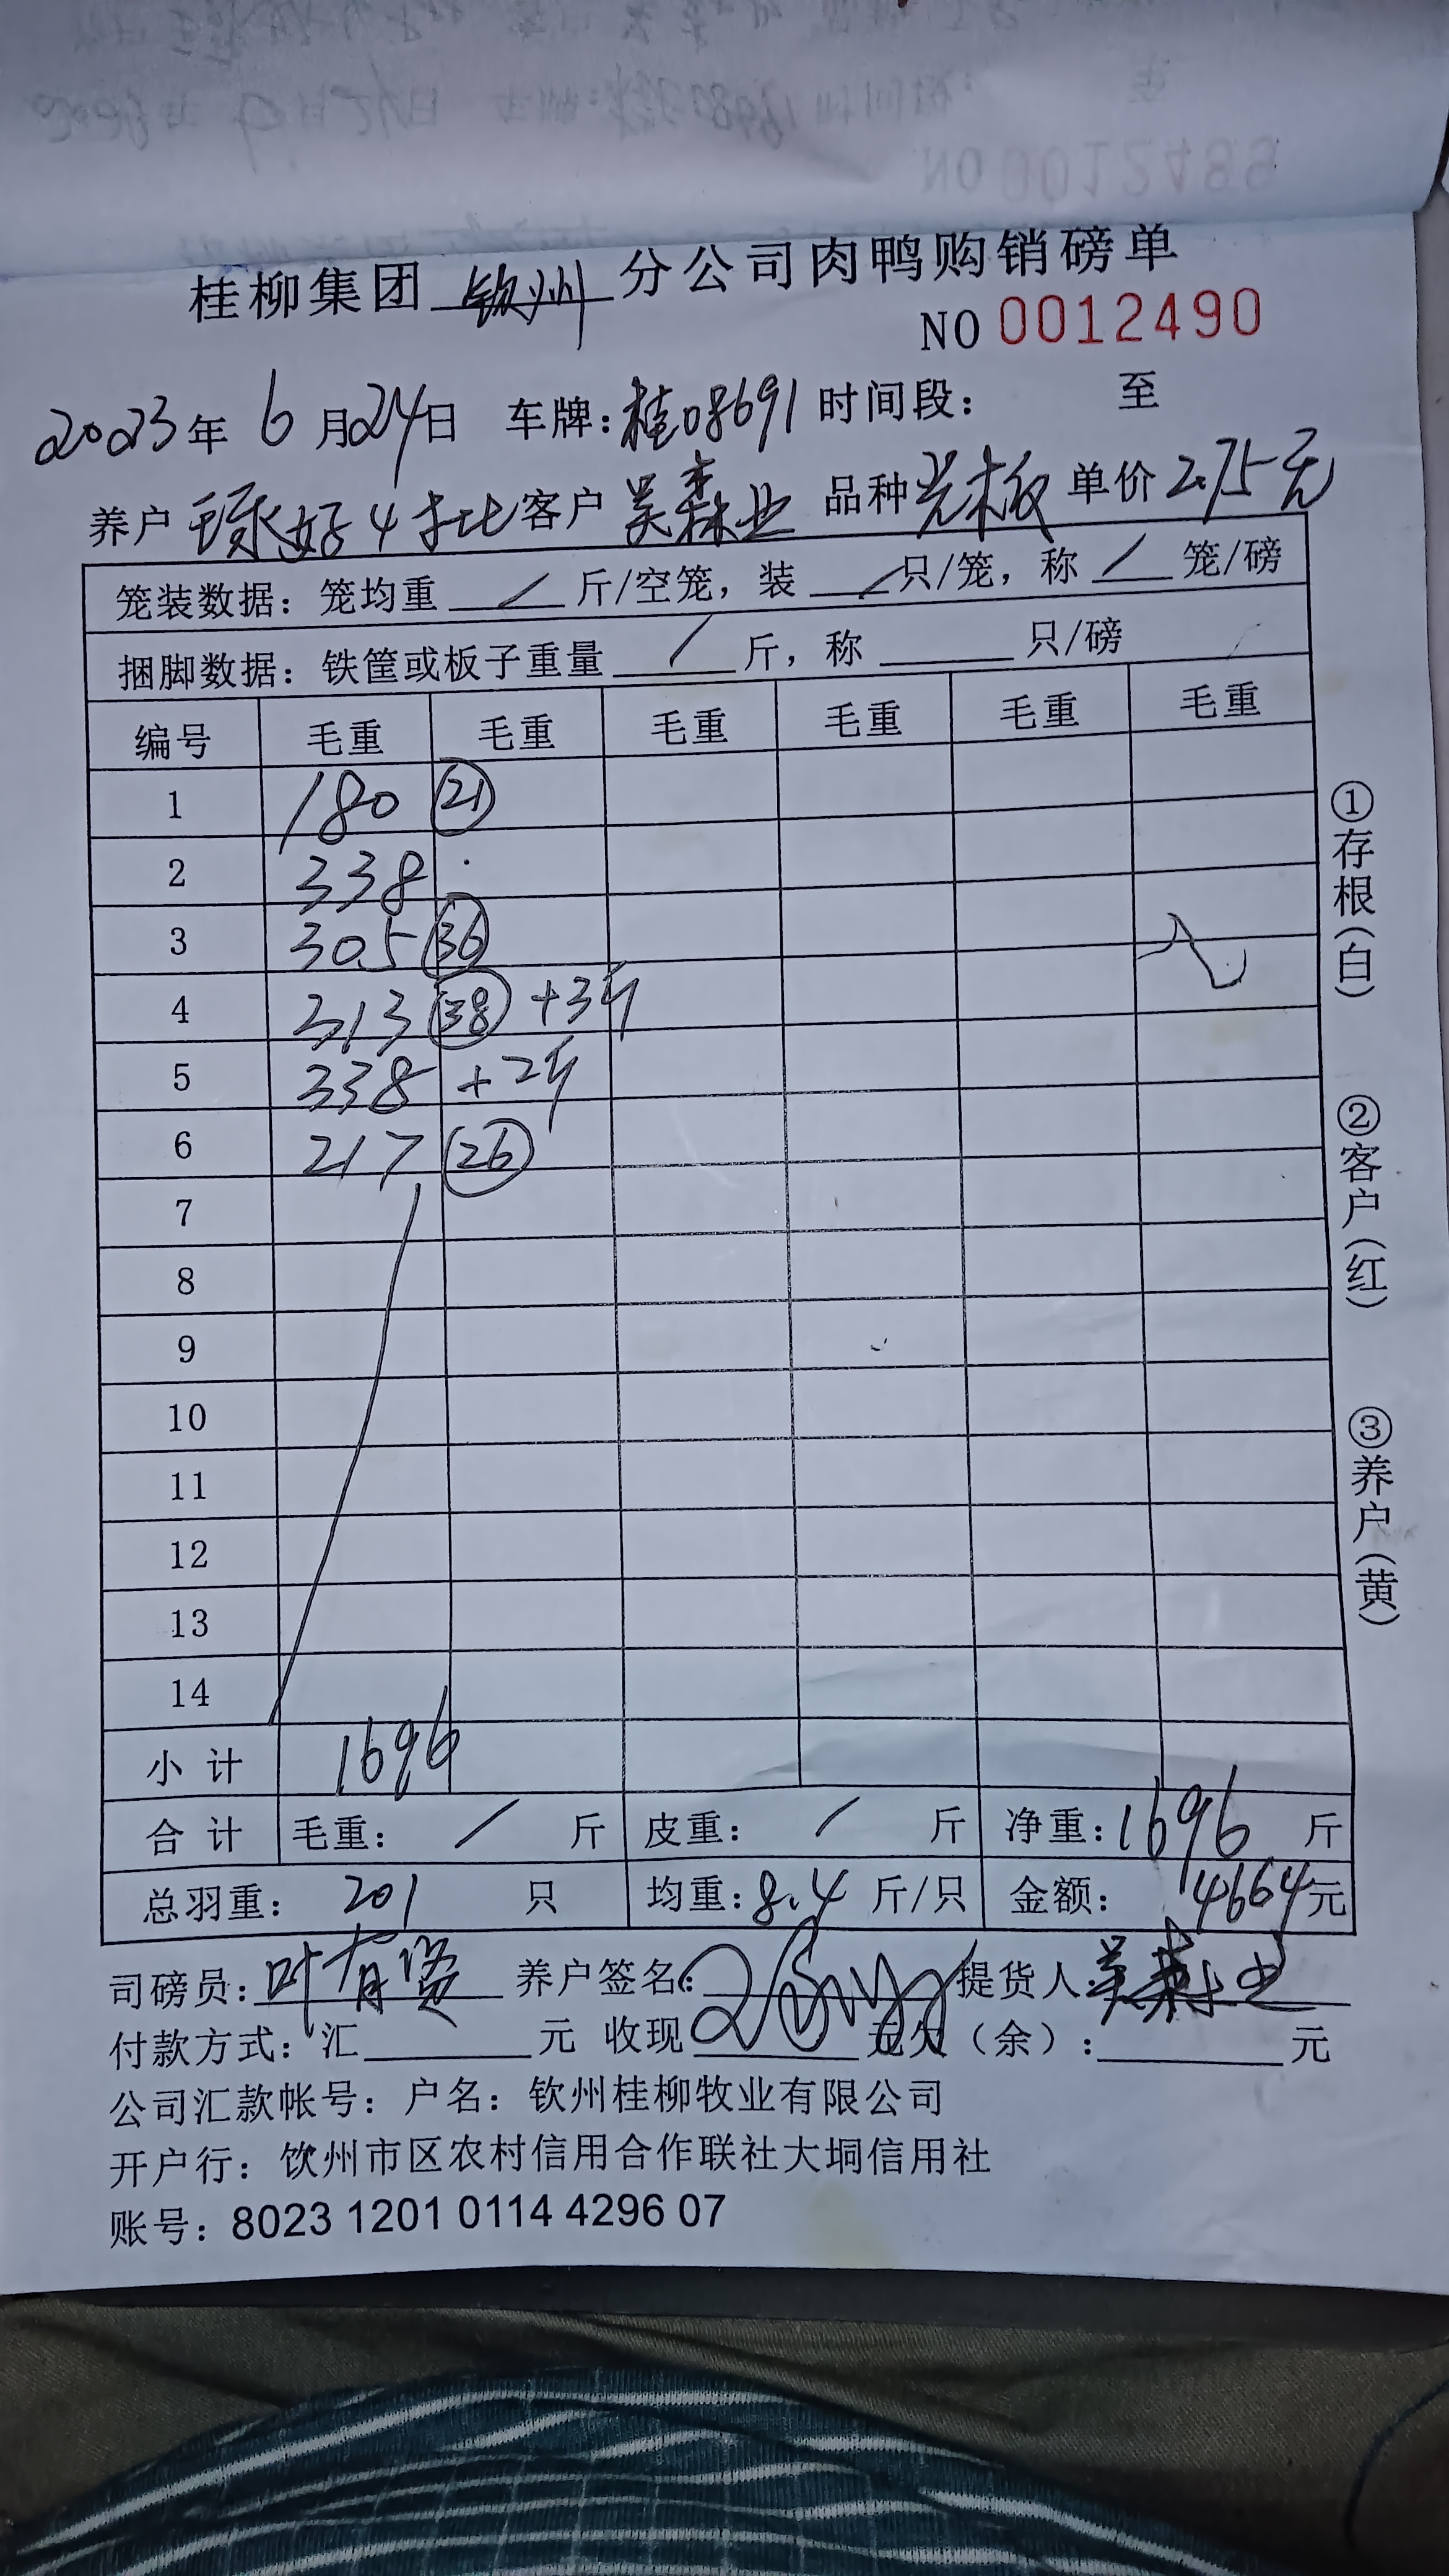 NO 0012489
桂柳集团 钦州 分公司肉鸭购销磅单
NO 0012490
2023年 6月24日 车牌:桂08691 时间段: 至
养户 好4批 客户 吴森业 品种 光板 单价 2.75元
笼装数据: 笼均重 / 斤/空笼, 装 / 只/笼, 称 / 笼/磅
捆脚数据: 铁筐或板子重量 / 斤, 称 只/磅
编号 毛重 毛重 毛重 毛重 毛重 毛重
1 180 (21)
2 338
3 305 (36)
4 313 (38) +3斤
5 338 +2斤
6 217 (26)
7
8
9
10
11
12
13
14
小计 1696
合计 毛重: / 斤 皮重: / 斤 净重: 1696 斤
总羽重: 201 只 均重: 8.4 斤/只 金额: 4664元
司磅员: 叶有贤 养户签名: 提货人: 吴森业
付款方式: 汇 元 收现 元欠(余): 元
公司汇款帐号: 户名: 钦州桂柳牧业有限公司
开户行: 钦州市区农村信用合作联社大垌信用社
账号: 8023 1201 0114 4296 07
①存根(白)
②客户(红)
③养户(黄)